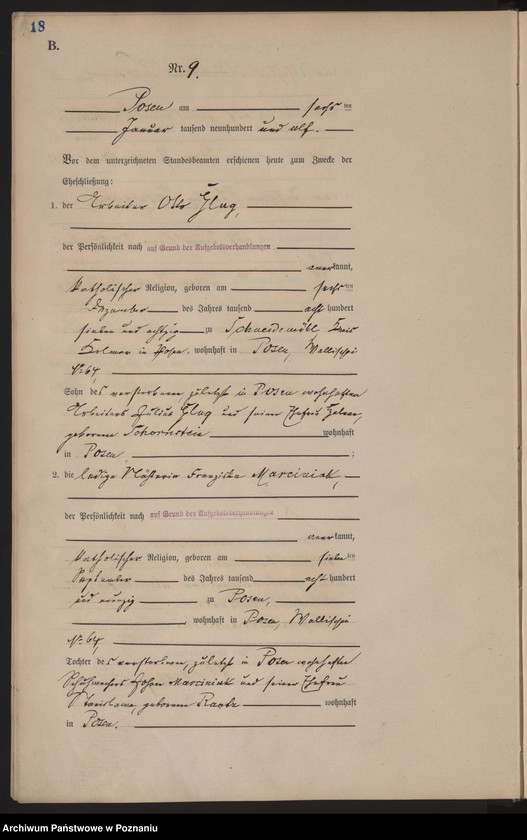 18
B.
Nr. 9.
Posen am sechsten
Januar tausend neunhundert und elf.
Vor dem unterzeichneten Standesbeamten erschienen heute zum Zwecke der
Eheschließung:
1. der Arbeiter Otto Klug,
der Persönlichkeit nach auf Grund der Aufgebotsverhandlungen
anerkannt,
katholischer Religion, geboren am sechsten
Dezember des Jahres tausend acht hundert
sieben und achtzig zu Schneidemühl Kreis
Kolmar in Posen, wohnhaft in Posen, Wallischei
No 64,
Sohn des verstorbenen, zuletzt in Posen wohnhaften
Arbeiters Julius Klug und seiner Ehefrau
geborenen Schornstein wohnhaft
in Posen. ;
2. die ledige Nähterin Franziska Marciniak,
der Persönlichkeit nach auf Grund der Aufgebotsverhandlungen
anerkannt,
katholischer Religion, geboren am siebenten
September des Jahres tausend acht hundert
und neunzig zu Posen,
, wohnhaft in Posen, Wallischei
No 64,
Tochter des verstorbenen, zuletzt in Posen wohnhaften
Schuhmachers Johann Marciniak und seiner Ehefrau
Stanislawa, geborenen wohnhaft
in Posen.
Archiwum Państwowe w Poznaniu